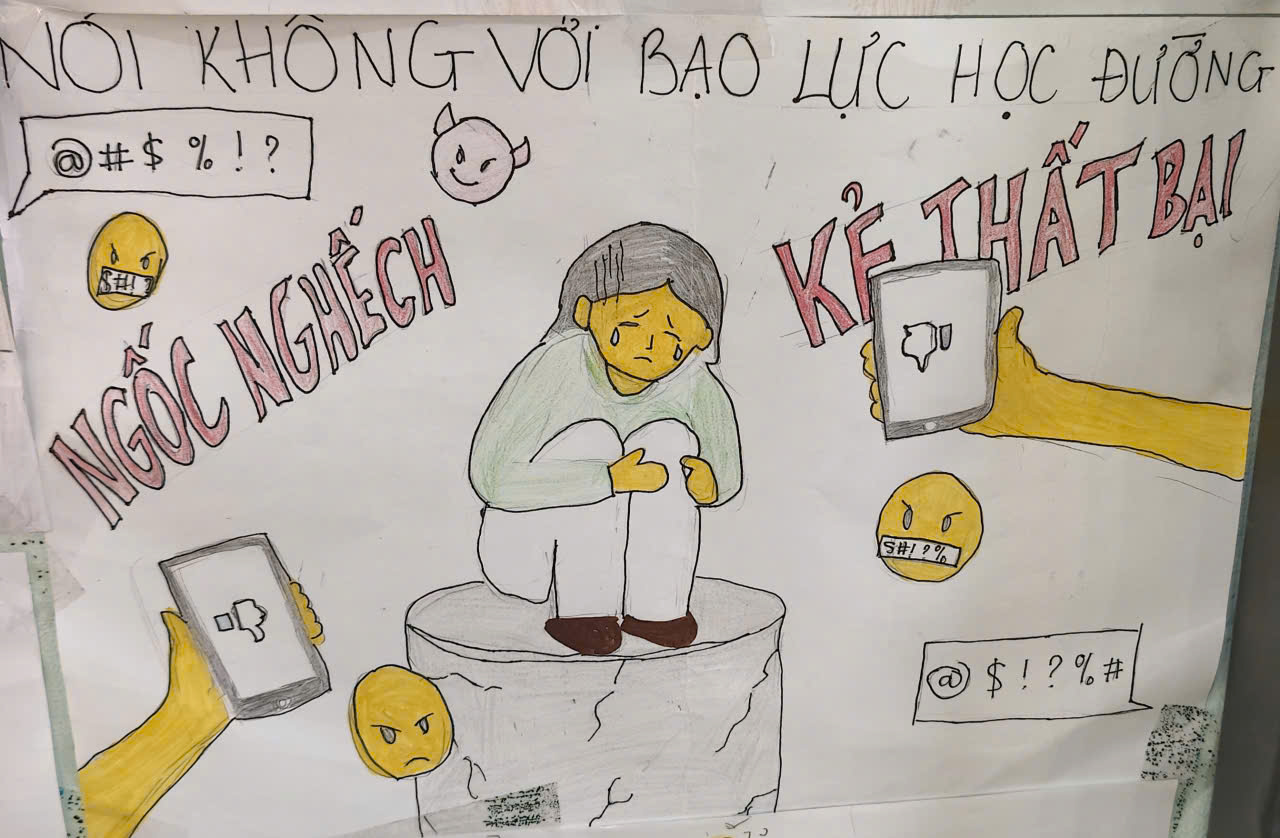 NÓI KHÔNG VỚI BẠO LỰC HỌC ĐƯỜNG
@#$ %!?
$#!?
NGỐC NGHẾCH
KẺ THẤT BẠI
$#!?%
@$!?%#